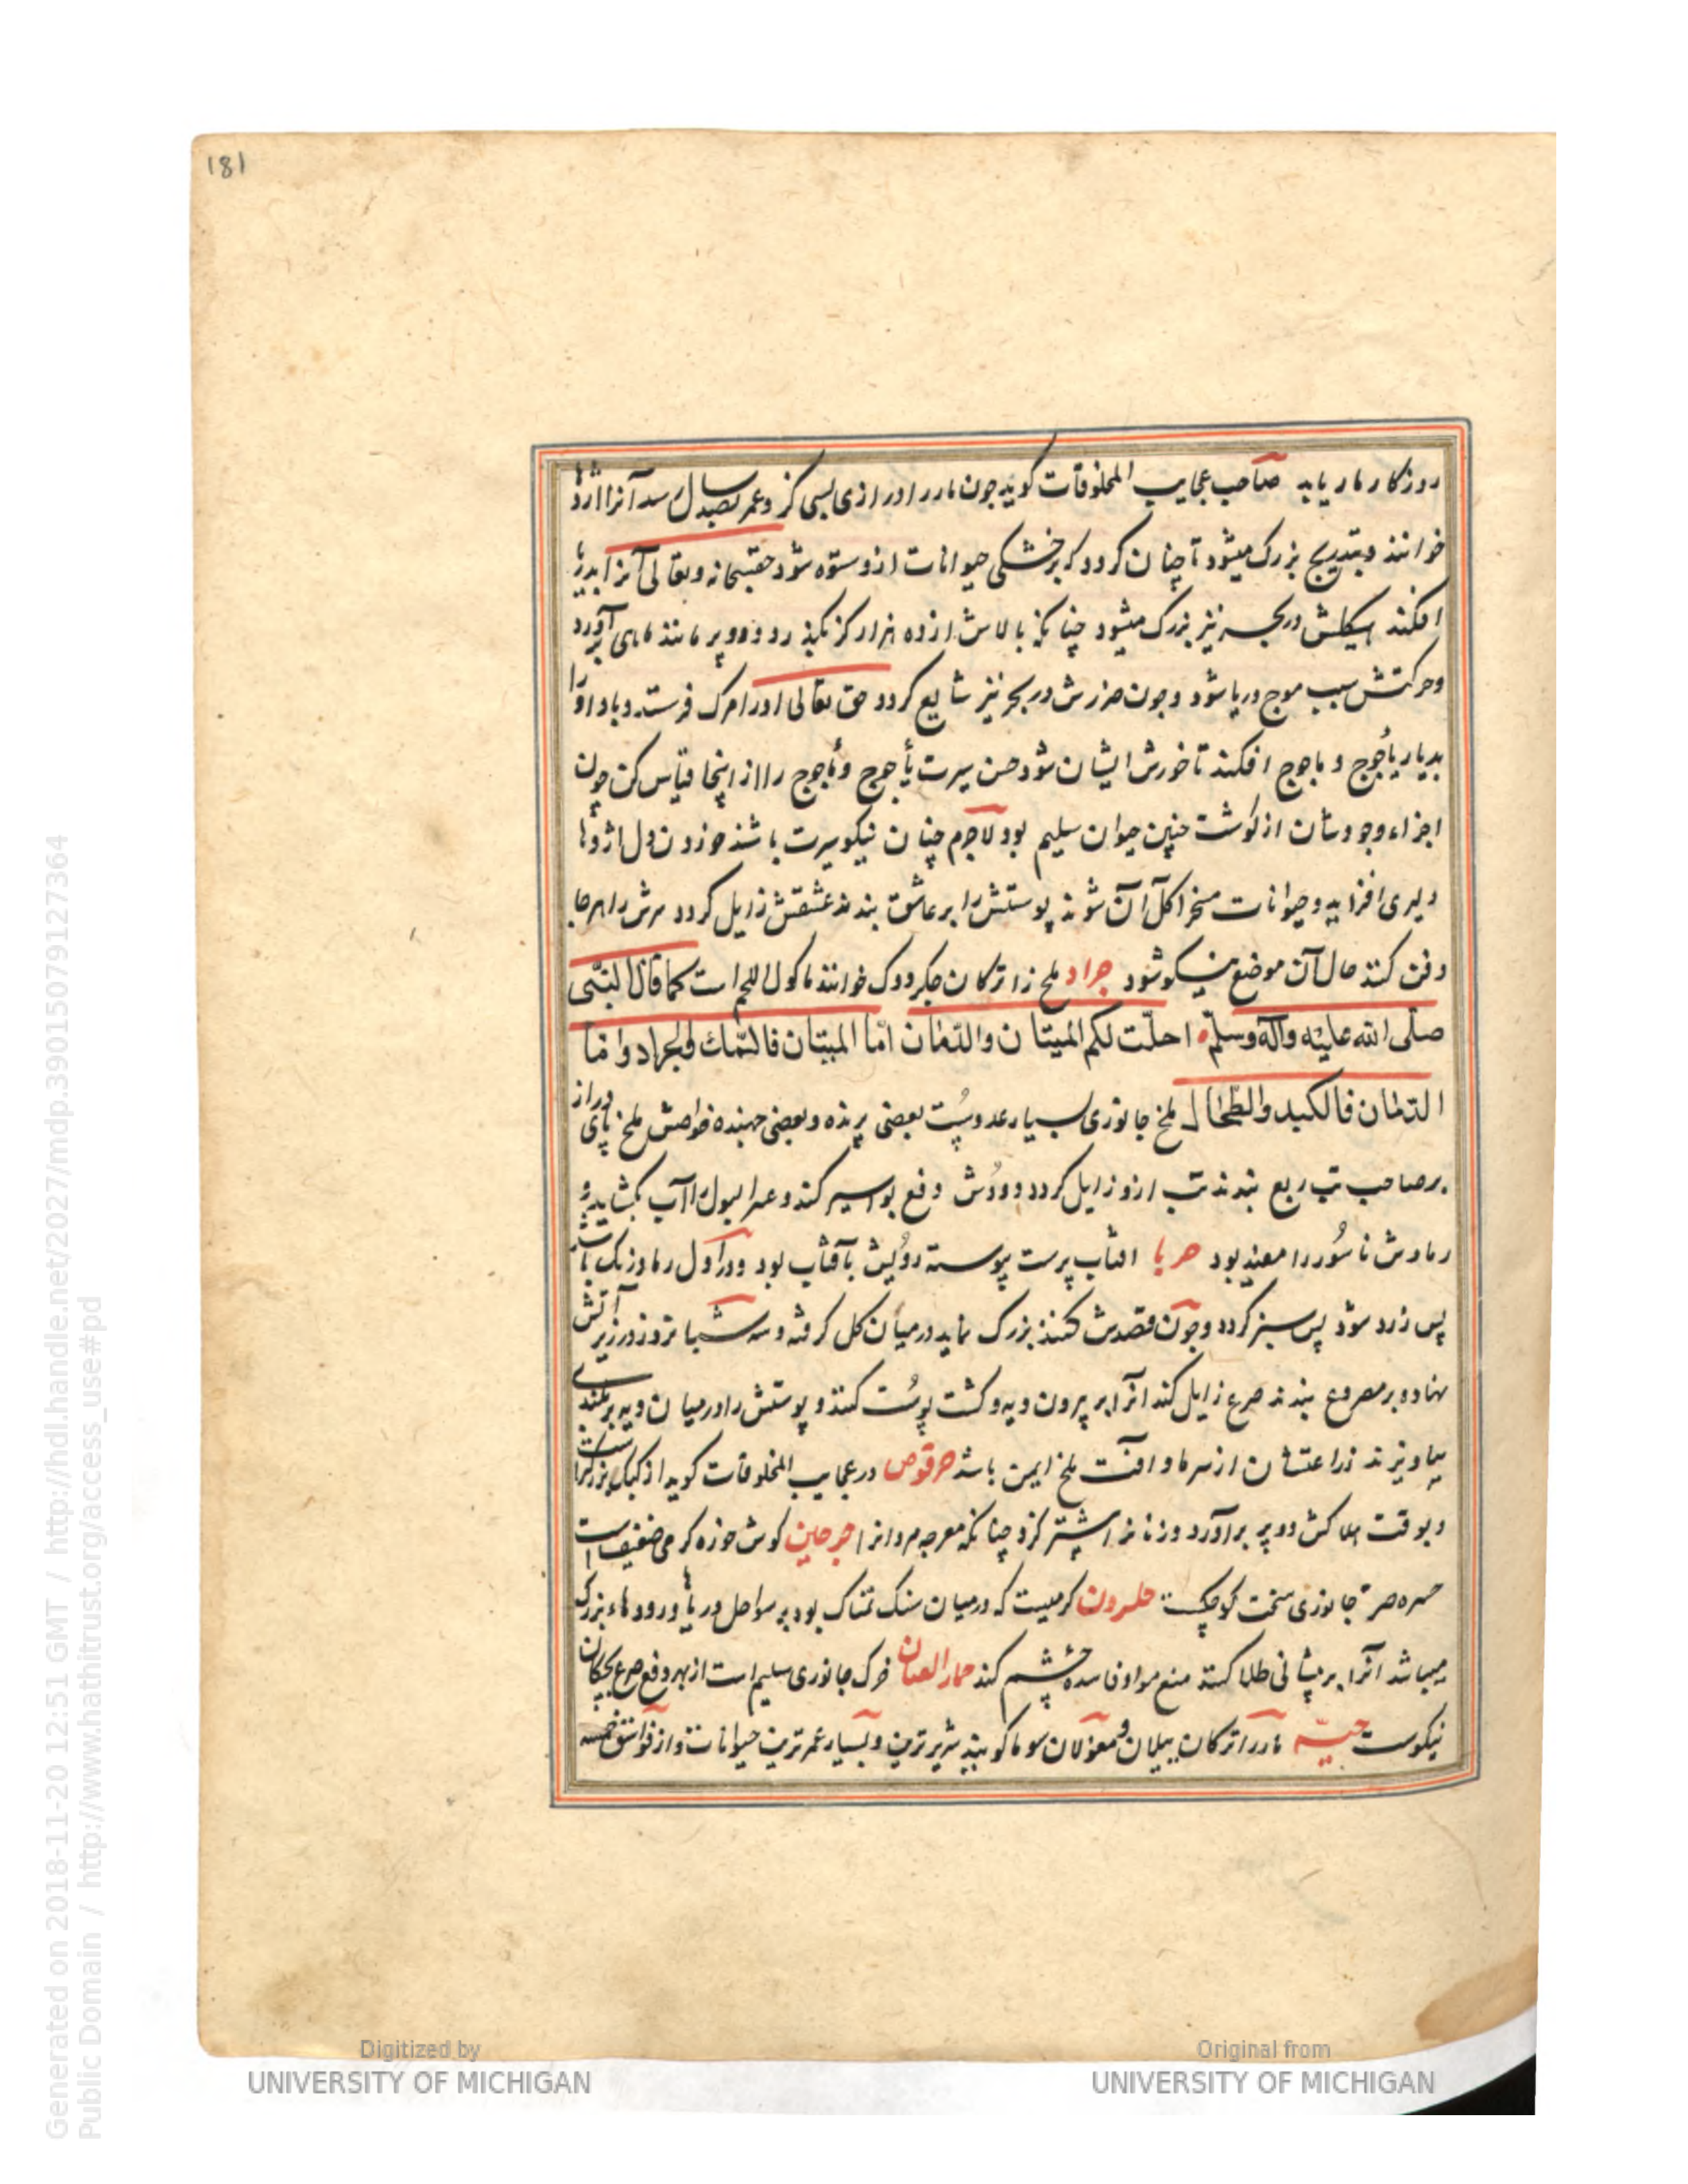 181
روزکار مار یابد صاحب عجایب المخلوقات کوید جون مار را درازی بسی کز و عمر بصد سال رسد آنرا اژدها
خوانند و بتدریج بزرک میشود تا چنان کردد که بر خشکی حیوانات ازو ستوه شود حقسبحانه وتعالی آنرا بدریا
افکند هیکلش در بحر نیز بزرک میشود چنانکه بالاش از ده هزار کز بکذرد و دو پر مانند ماهی برآورد
وحرکتش سبب موج دریا شود وجون ضررش در بحر نیز شایع کردد حق تعالی او را مرک فرستد و باد او را
بدیار یأجوج و ماجوج افکند تا خورش ایشان شود حسن سیرت یأجوج و مأجوج را از اینجا قیاس کن چون
اجزاء وجودشان از کوشت چنین حیوان سلیم بود لاجرم چنان نیکو سیرت باشند خوردن دل اژدها
دلیری افزاید وحیوانات مسخر آکل آن شوند پوستش را بر عاشق بندند عشقش زایل کردد سرش را هرجا
دفن کنند حال آن موضع نیکو شود جراد ملخ را ترکان جکردوک خوانند ماکول اللحم است کما قال النبی
صلی الله علیه وآله وسلم احلت لکم المیتان والدمان اما المیتان فالسمک والجراد واما
الدمان فالکبد والطحال ملخ جانوری بسیار عدوست بعضی پرنده وبعضی جهنده خواصش ملخ پای دراز
بر صاحب تب ربع بندند تب ازو زایل کردد ودودش دفع بواسیر کند وعسر البول را آب بکشاید و
رمادش ناسور را مفید بود حربا افتاب پرست پیوسته رویش بآفتاب بود ودر اول رماد رنک باشد
پس زرد شود پس سبز کردد وجون قصدش کنند بزرک نماید در میان کل کرفته و سه شبانروز در زیر آتش
نهاده بر مصروع بندند صرع زایل کند آنرا بر پیرون دیه و کشت پوست کنند و پوستش را در میان دیه بر بلندی
بیاویزند زراعتشان از سرما و افت ملخ ایمن باشد حرقوص در عجایب المخلوقات کوید از کیک بزرکتر است
و بوقت هلاکش دو پر برآورد و زنانرا بیشتر کزد چنانکه مورچه مردانرا خرحین کوش خوره کرمی ضعیف است
جانوری سخت کوچکست حلزون کرمیست که در میان سنک نمناک بود بر سواحل دریاها و رودهاء بزرک
میباشد آنرا بر پیشانی طلا کنند منع مواد فاسده چشم کند حمار القبان خرک جانوری سلیم است از بهر دفع صرع بچکان
نیکوست حیه مار را ترکان ییلان و مغولان موغا کویند شریرترین و بسیار عمرترین حیوانات و از فواسق خمسه
Generated on 2018-11-20 12:51 GMT / http://hdl.handle.net/2027/mdp.39015079127364
Public Domain / http://www.hathitrust.org/access_use#pd
Digitized by
UNIVERSITY OF MICHIGAN
Original from
UNIVERSITY OF MICHIGAN